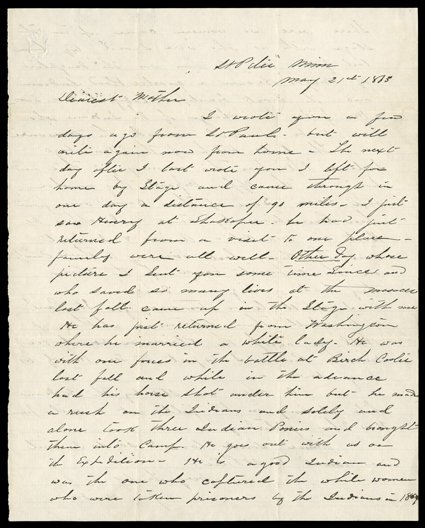 St Peter Minn
May 21st 1863
Dearest Mother
I wrote you a few
days ago from St Paul - but will
write again now from home - The next
day after I last wrote you I left for
home by Stage and came through in
one day a distance of 90 miles - I just
saw Henry at Shakopee - he had just
returned from a visit to our place -
family were all well - Other Day whose
picture I sent you some time since and
who saved so many lives at the massacre
last fall came up in the Stage with me
He has just returned from Washington
where he married a white lady. He was
with our forces in the battle at Birch Coolie
last fall and while in the advance
had his horse shot under him but he made
a rush on the Indians and solely and
alone took three Indian Ponies and brought
them into Camp. He goes out with us on
the Expedition - He is a good Indian and
was the one who captured the white women
who were taken prisoners by the Indians in